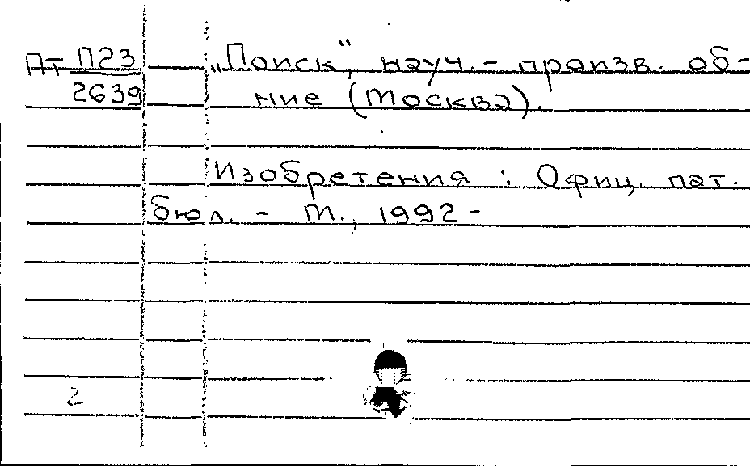 Пт П23 „Поиск", науч.- произв. об-
2639 ние (Москва).
Изобретения : Офиц. пат.
бюл. - М., 1992 -
2